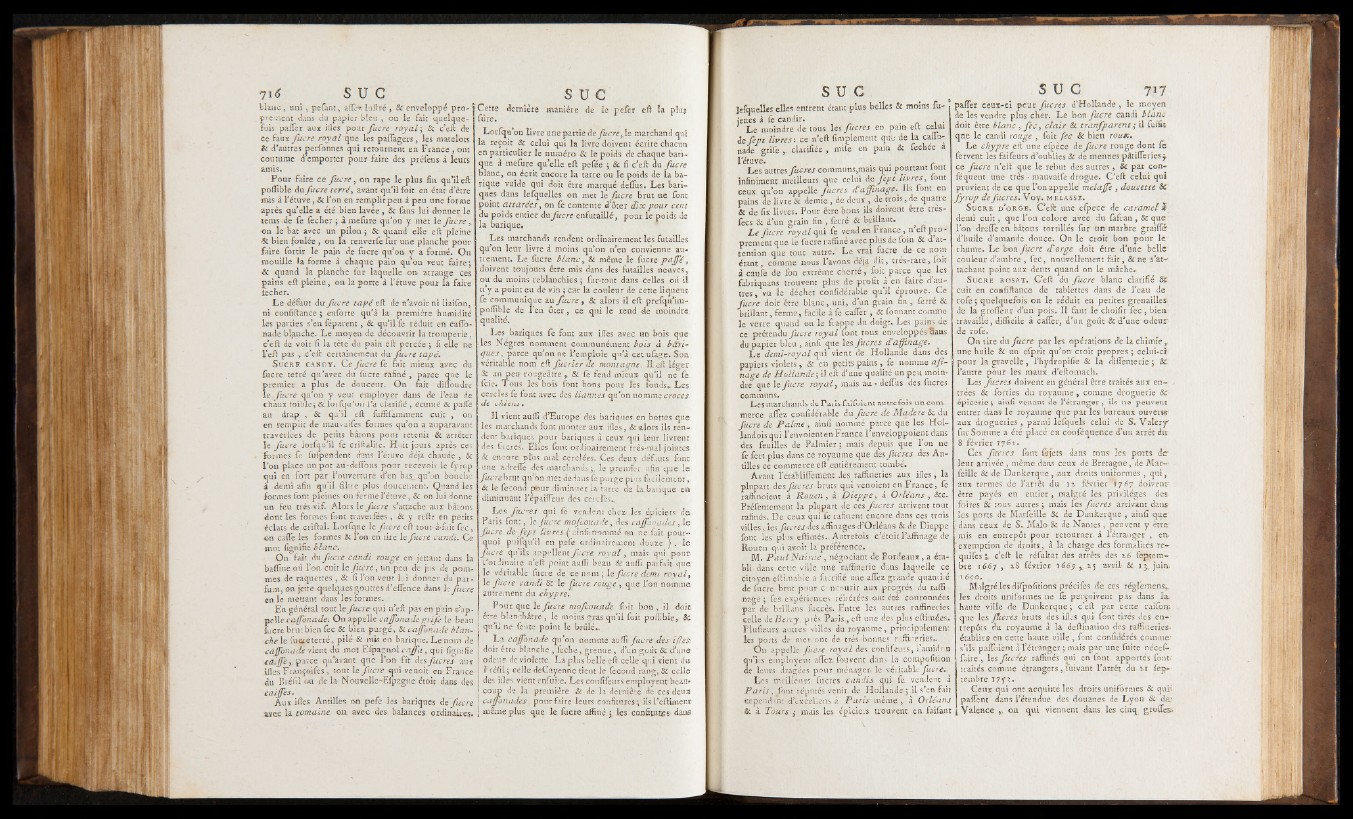 716 S U C
blanc, uni, pesant, assez lustré, & enveloppé pro-
prement dans du papier bleu, on le fait quelque-
fois passer aux isles pour sucre royal; & c'est de
ce faux sucre royal que les passagers, les matelots
& d'autres personnes qui retournent en France, ont
coutume d'emporter pour faire des présens à leurs
amis.
Pour faire ce sucre, on rape le plus fin qu'il est
possible du sucre terré, avant qu'il soit en état d'être
mis à l'étuve, & l'on en remplit peu à peu une forme
après qu'elle a été bien lavée, & sans lui donner le
tems de se secher; à mesure qu'on y met le sucre,
on le bat avec un pilon; & quand elle est pleine
& bien foulée, on la renverse sur une planche pour
faire sortir le pain de sucre qu'on y a formé. On
mouille la forme à chaque pain qu'on veut faire;
& quand la planche sur laquelle on arrange ces
pains est pleine, on la porte à l'étuve pour la faire
secher.
Le défaut du sucre tapé est de n'avoir ni liaison,
ni consistance; ensorte qu'à la première humidité
les parties s'en séparent, & qu'il se réduit en casso-
nade blanche. Le moyen de découvrir la tromperie,
c'est de voir si la tête du pain est percée; si elle ne
l'est pas, c'est certainement du sucre tapé.
SUCRE CANDY. Ce sucre se fait mieux avec du
sucre terré qu'avec du sucre rafiné, parce que le
premier a plus de douceur. On fait dissoudre
le sucre qu'on y veut employer dans de l'eau de
chaux foible; & lorsqu'on l'a clarifié, écumé & passé
au drap, & qu'il est suffisamment cuit, on
en remplit de mauvaises formes qu'on a auparavant
traversées de petits bâtons pour retenir & arrêter
le sucre lorsqu'il se cristalise. Huit jours après ces
formes se suspendent dans l'étuve déja chaude, &
l'on place un pot au-dessous pour recevoir le syrop
qui en sort par l'ouverture d'en bas, qu'on bouche
à demi afin qu'il filtre plus doucement. Quand les
formes sont pleines on ferme l'étuve, & on lui donne
un feu très-vif. Alors le sucre s'attache aux bâtons
dont les formes sont traversées, & y reste en petits
éclats de cristal. Lorsque le sucre est tout-à-fait sec,
on casse les formes & l'on en tire le sucre candi. Ce
mot signifie blanc.
On fait du sucre candi rouge en jettant dans la
bassine où l'on cuit le sucre, un peu de jus de pom-
mes de raquettes, & si l'on veut lui donner du par-
fum, on jette quelques gouttes d'essence dans le sucre
en le mettant dans les formes.
En général tout le sucre qui n'est pas en pain s'ap-
pelle cassonade. On appelle cassonade grise le beau
sucre brut bien sec & bien purgé, & cassonade blan-
che le sucre terré, pilé & mis en barique. Le nom de
cassonade vient du mot Espagnol cassa, qui signifie
caisse, parce qu'avant que l'on fit des sucres aux
isles Françoises, tout le sucre qui venoit en France
du Brésil ou de la Nouvelle-Espagne étoit dans des
caisses.
Aux isles Antilles on pese les bariques de sucre
avec la romaine ou avec des balances ordinaires.
S U C
Cette dernière manière de le peser est la plus
sûre.
Lorsqu'on livre une partie de sucre, le marchand qui
la reçoit & celui qui la livre doivent écrite chacun
en particulier le numéro & le poids de chaque bari-
que à mesure qu'elle est pesée; & si c'est du sucre
blanc, on écrit encore la tarre ou le poids de la ba-
rique vuide qui doit être marqué dessus. Les bari-
ques dans lesquelles on met le sucre brut ne sont
point attarées, on se contente d'ôter dix pour cent
du poids entier du sucre enfutaillé, pour le poids de
la barique.
Les marchands rendent ordinairement les futailles
qu'on leur livre à moins qu'on n'en convienne au-
trement. Le sucre blanc, & même le sucre passé,
doivent toujours être mis dans des futailles neuves,
ou du moins reblanchies; sur-tout dans celles où il
n'y a point eu de vin; car la couleur de cette liqueur
se communique au sucre, & alors il est presqu'im-
possible de l'en ôter, ce qui le rend de moindre
qualité.
Les bariques se font aux isles avec un bois que
les Nègres nomment communément bois à bari-
ques, parce qu'on ne l'emploie qu'à cet usage. Son
véritable nom est sucrier de montagne. Il est léger
& un peu rougeâtre, & se fend mieux qu'il ne se
scie. Tous les bois sont bons pour les fonds. Les
cercles se font avec des liannes qu'on nomme crocs
de chiens.
Il vient aussi d'Europe des bariques en bottes que
les marchands font monter aux isles, & alors ils ren-
dent bariques pour bariques à ceux qui leur livrent
des sucres. Elles sont ordinairement très-mal jointes
& encore plus mal cerclées. Ces deux défauts sont
une adresse des marchands; le premier afin que le
sucre brut qu'on met dedans se purge plus facilement,
& le second pour diminuer la tarre de la barique en
diminuant l'épaisseur des cercles.
Les sucres qui se vendent chez les épiciers de
Paris sont, le sucre moscouade, des cassonades, le
sucre de sept livres (ainsi nommé on ne sait pour-
quoi puisqu'il en pese ordinairement douze), le
sucre qu'ils appellent sucre royal, mais qui pour
l'ordinaire n'est point aussi beau & aussi parfait que
le véritable sucre de ce nom; le sucre demi royal,
le sucre candi & le sucre rouge, que l'on nomme
autrement du chypre.
Pour que le sucre moscouade soit bon, il doit
être blanchâtre, le moins gras qu'il soit possible, &
qu'il ne sente point le brûlé.
La cassonade qu'on nomme aussi sucre des isles
doit être blanche, seche, grenue, d'un goût & d'une
odeur de violette. La plus belle est celle qui vient du
Brésil; celle de Cayenne tient le second rang, & celle
des isles vient ensuite. Les confiseurs employent beau-
coup de la première & de la dernière de ces deux
cassonades, pour faire leurs confitures; ils l'estiment
même plus que le sucre affiné; les confitures dans
S U C
lesquelles elles entrent étant plus belles & moins su-
jettes à se candir.
Le moindre de tous les sucres en pain est celui
de sept livres: ce n'est simplement que de la casso-
nade grise, clarifiée, mise en pain & sechée à
l'étuve.
Les autres sucres communs, mais qui pourtant sont
infiniment meilleurs que celui de sept livres, sont
ceux qu'on appelle sucres d'affinage. Ils sont en
pains de livre & demie, de deux, de trois, de quatre
& de six livres. Pour être bons ils doivent être très-
secs & d'un grain fin, serré & brillant.
Le sucre royal qui se vend en France, n'est pro-
prement que le sucre raffiné avec plus de soin & d'at-
tention que tout autre. Le vrai sucre de ce nom
étant, comme nous l'avons déja dit, très-rare, soit
à cause de son extrême cherté, soit parce que les
fabriquans trouvent plus de profit à en faire d'au-
tres, vu le déchet considérable qu'il éprouve. Ce
sucre doit être blanc, uni, d'un grain fin, serré &
brillant, ferme, facile à se casser, & sonnant comme
le verre quand on le frappe du doigt. Les pains de
ce prétendu sucre royal sont tous enveloppés dans
du papier bleu, ainsi que les sucres d'affinage.
Le demi-royal qui vient de Hollande dans des
papiers violets, & en petits pains, se nomme afi-
nage de Hollande; il est d'une qualité un peu moin-
dre que le sucre royal, mais au-dessus des sucres
communs.
Les marchands de Paris faisoient autrefois un com-
merce assez considérable du sucre de Madere & du
sucre de Palme, ainsi nommé parce que les Hol-
landois qui l'envoient en France l'enveloppoient dans
des feuilles de Palmier; mais depuis que l'on ne
se sert plus dans ce royaume que des sucres des An-
tilles ce commerce est entièrement tombé.
Avant l'établissement des raffineries aux isles, la
plupart des sucres bruts qui venoient en France, se
raffinoient à Rouen, à Dieppe, à Orléans, &c.
Présentement la plupart de ces sucres arrivent tout
rafinés. De ceux qui se rafinent encore dans ces trois
villes, les sucres des affinages d'Orléans & de Dieppe
sont les plus estimés. Autrefois c'étoit l'affinage de
Rouen qui avoit la préférence.
M. Paul Nairac, négociant de Bordeaux, a éta-
bli dans cette ville une raffinerie dans laquelle ce
citoyen estimable a sacrifié une assez grande quantité
de sucre brut pour concourir aux progrès du raffi-
nage; ses expériences réitérées ont été couronnées
par de brillans succès. Entre les autres raffineries
celle de Bercy près Paris, est une des plus estimées.
Plusieurs autres villes du royaume, principalement
les ports de mer ont de très-bonnes raffineries.
On appelle sucre royal des confiseurs, l'amidon
qu'ils employent assez souvent dans la composition
de leurs dragées pour ménager le véritable sucre.
Les meilleurs sucres candis qui se vendent à
Paris, sont réputés venir de Hollande; il s'en fait
cependant d'excellens à Paris même, à Orléans
& à Tours; mais les épiciers trouvent en faisant
S U C 717
passer ceux-ci pour sucres d'Hollande, le moyen
de les vendre plus cher. Le bon sucre candi blanc
doit être blanc, sec, clair & transparent; il suffit
que le candi rouge, soit sec & bien roux.
Le chypre est une espèce de sucre rouge dont se
servent les faiseurs d'oublies & de menues pâtisseries;
ce sucre n'est que le rebut des autres, & par con-
séquent une très-mauvaise drogue. C'est celui qui
provient de ce que l'on appelle melasse, doucette &
syrop de sucres. Voy. MELASSE.
SUCRE D'ORGE. C'est une espece de caramel à
demi cuit, que l'on colore avec du safran, & que
l'on dresse en bâtons tortillés sur un marbre graissé
d'huile d'amande douce. On le croit bon pour le
rhume. Le bon sucre d'orge doit être d'une belle
couleur d'ambre, sec, nouvellement fait, & ne s'at-
tachant point aux dents quand on le mâche.
SUCRE ROSAT. C'est du sucre blanc clarifié &
cuit en consistance de tablettes dans de l'eau de
rose; quelquefois on le réduit en petites grenailles
de la grosseur d'un pois. Il faut le choisir sec, bien
travaillé, difficile à casser, d'un goût & d'une odeur
de rose.
On tire du sucre par les opérations de la chimie,
une huile & un esprit qu'on croit propres; celui-ci
pour la gravelle, l'hydropisie & la dissenterie; &
l'autre pour les maux d'estomach.
Les sucres doivent en général être traités aux en-
trées & sorties du royaume, comme droguerie &
épicerie; ainsi venant de l'étranger, ils ne peuvent
entrer dans le royaume que par les bureaux ouverts
aux drogueries, parmi lesquels celui de S. Valery
sur Somme a été placé en conséquence d'un arrêt du
8 février 1761.
Ces sucres sont sujets dans tous les ports de
leur arrivée, même dans ceux de Bretagne, de Mar-
seille & de Dunkerque, aux droits uniformes, qui,
aux termes de l'arrêt du 12 février 1767 doivent
être payés en entier, malgré les privilèges des
foires & tous autres; mais les sucres arrivant dans
les ports de Marseille & de Dunkerque, ainsi que
dans ceux de S. Malo & de Nantes, peuvent y être
mis en entrepôt pour retourner à l'étranger, en
exemption de droits, à la charge des formalités re-
quises; c'est le résultat des arrêts des 12 septem-
bre 1667, 28 février 1669, 25 avril & 13 juin
1690.
Malgré les dispositions précises de ces réglemens,
les droits uniformes ne se perçoivent pas dans la
haute ville de Dunkerque; c'est par cette raison
que les sucres bruts des isles qui sont tirés des en-
trepôts du royaume à la destination des raffineries
établies en cette haute ville, sont considérés comme
s'ils passoient à l'étranger; mais par une suite néces-
saire, les sucres raffinés qui en sont apportés sont
traités comme étrangers, suivant l'arrêt du 21 sep-
tembre 1751.
Ceux qui ont acquitté les droits uniformes & qui
passent dans l'étendue des douanes de Lyon & de
Valence, ou qui viennent dans les cinq grosses